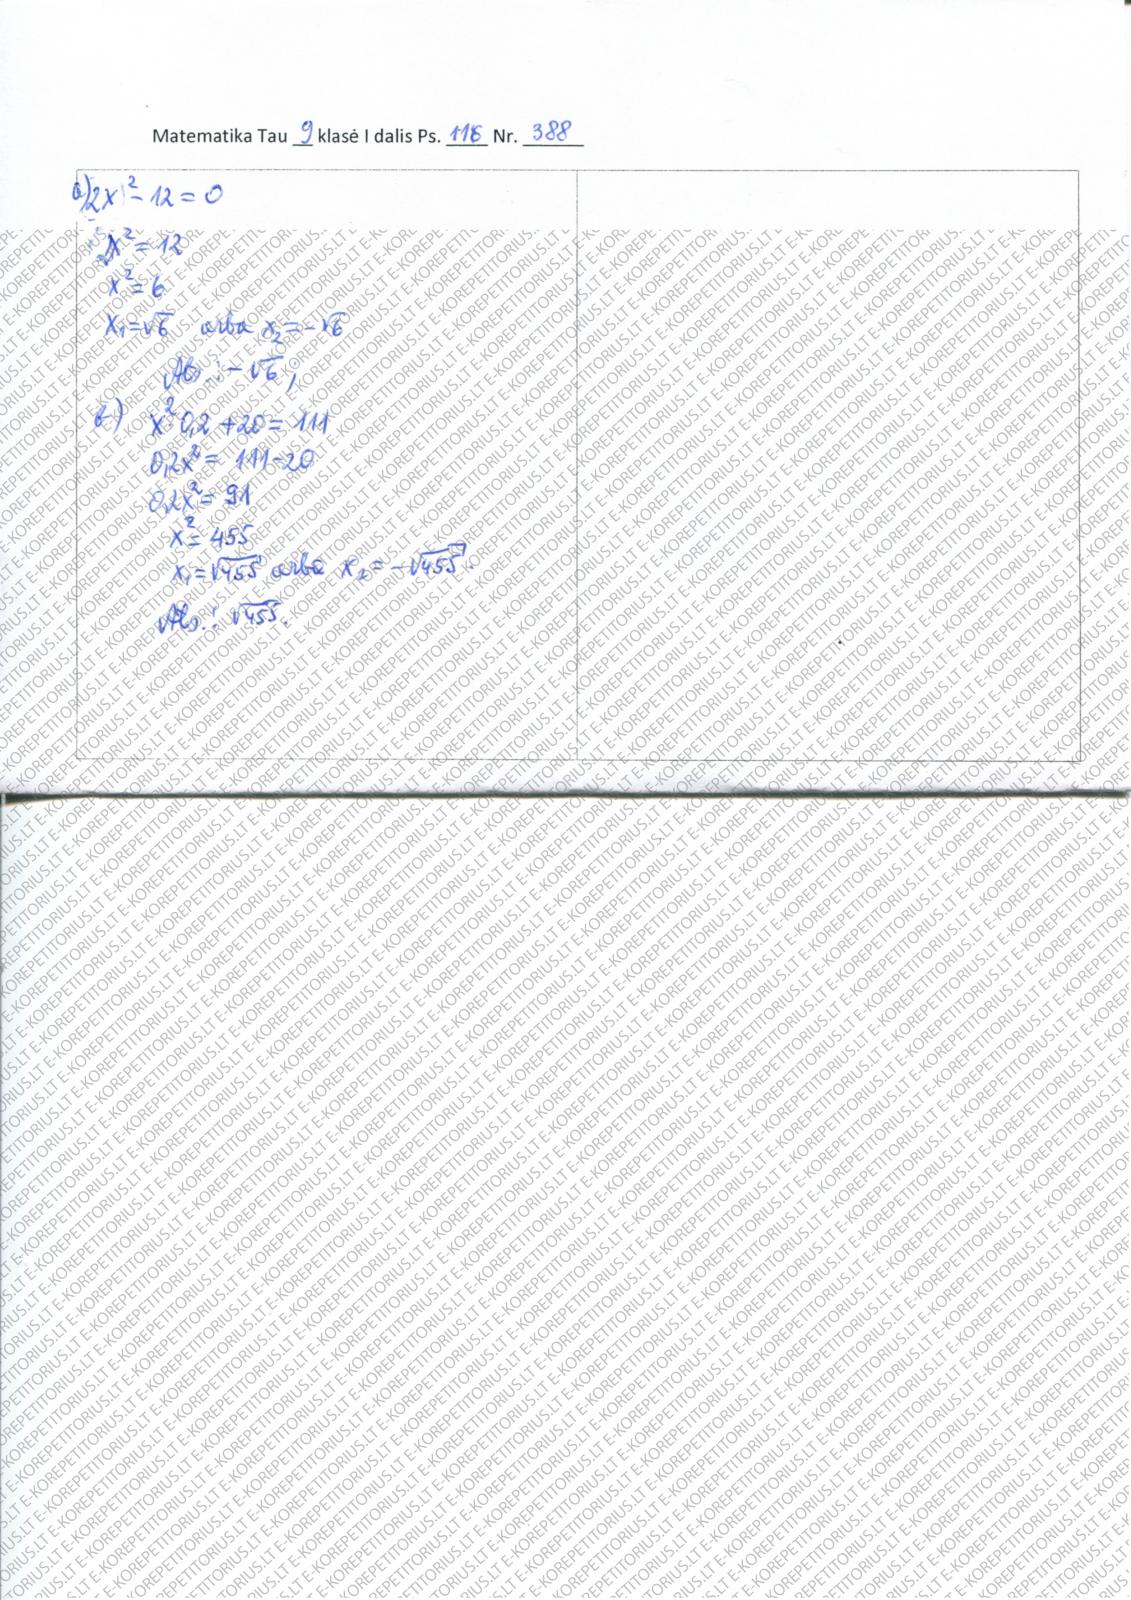 Matematika Tau 9 klasė I dalis Ps. 116 Nr. 388
a) 2x² - 12 = 0
2x² = 12
x² = 6
x₁ = √6 arba x₂ = -√6
Ats.: -√6;
b) x² 0,2 + 20 = 111
0,2x² = 111 - 20
0,2x² = 91
x² = 455
x₁ = √455 arba x₂ = -√455.
Ats.: √455.
E-KOREPETITORIUS.LT